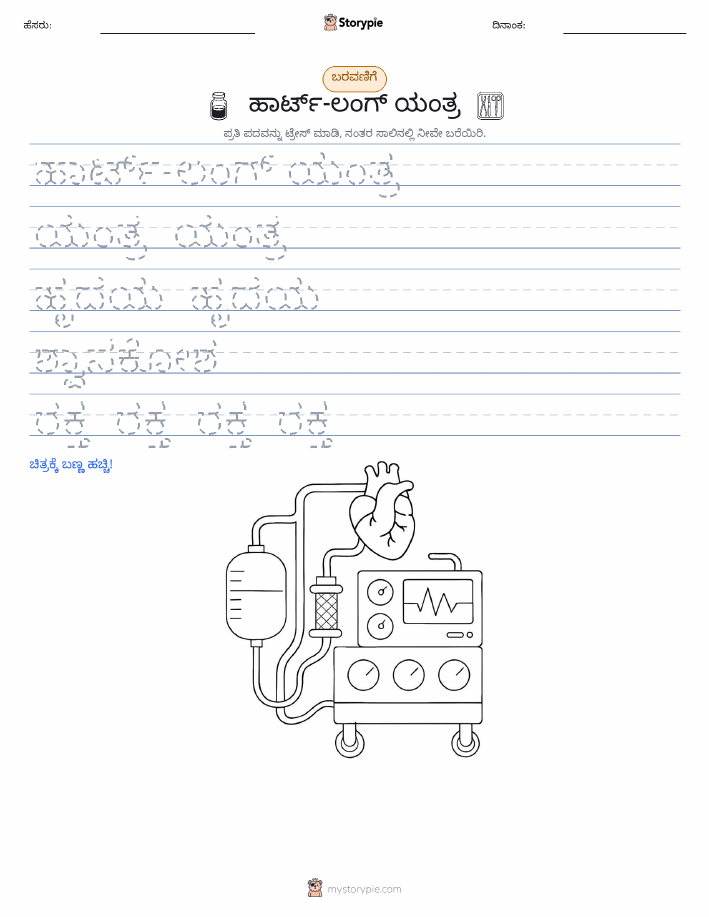 ಹೆಸರು:
Storypie
ದಿನಾಂಕ:
ಬರವಣಿಗೆ
ಹಾರ್ಟ್-ಲಂಗ್ ಯಂತ್ರ
ಪ್ರತಿ ಪದವನ್ನು ಟ್ರೇಸ್ ಮಾಡಿ, ನಂತರ ಸಾಲಿನಲ್ಲಿ ನೀವೇ ಬರೆಯಿರಿ.
ಹಾರ್ಟ್-ಲಂಗ್ ಯಂತ್ರ
ಯಂತ್ರ ಯಂತ್ರ
ಹೃದಯ ಹೃದಯ
ಶ್ವಾಸಕೋಶ
ರಕ್ತ ರಕ್ತ ರಕ್ತ ರಕ್ತ
ಚಿತ್ರಕ್ಕೆ ಬಣ್ಣ ಹಚ್ಚಿ!
mystorypie.com